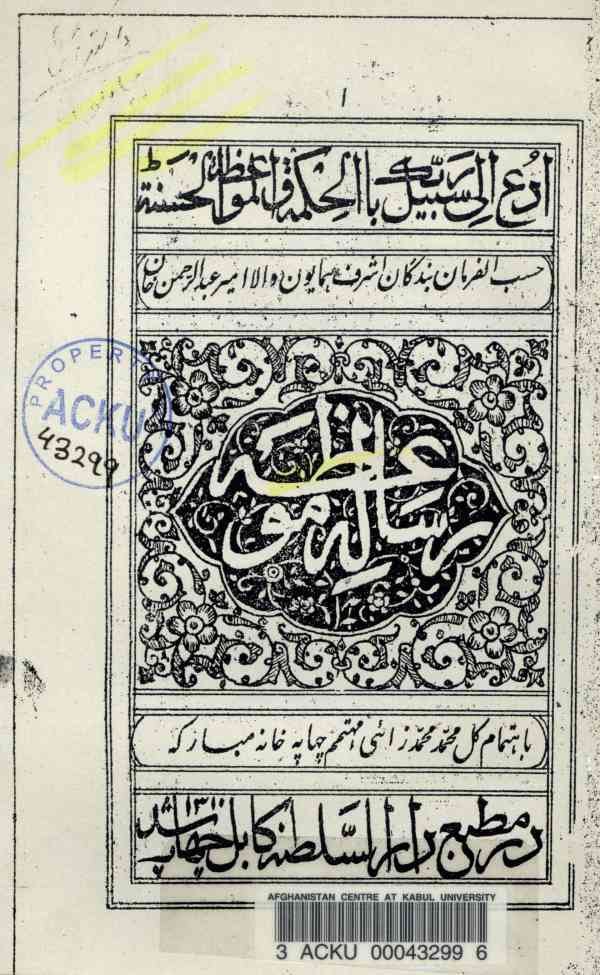 ۱
ادع الی سبیل ربک باالحکمة والموعظة الحسنة
حسب الفرمان بندگان اشرف همایون والا امیر عبدالرحمن خان
رساله موعظه
PROPERTY
ACKU
43299
باهتمام گل محمد محمد زائی مهتمم چهاپه خانه مبارکه
در مطبع دارالسلطنه کابل چهاپ شد ۱۳۱۱
AFGHANISTAN CENTRE AT KABUL UNIVERSITY
3 ACKU 00043299 6